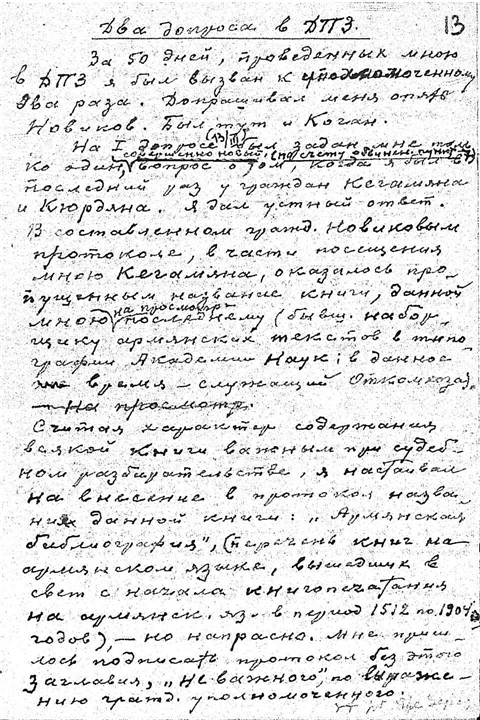 13
Два допроса в ДПЗ.
За 50 дней, проведенных мною
в ДПЗ я был вызван к уполномоченному
два раза. Допрашивал меня опять
Новиков. Был тут и Коган.
На I допросе (13/III) был задан мне толь-
ко один совершенно новый (по счету обвинен. пункт)
вопрос о том, когда я был в
последний раз у граждан Кегамяна
и Кюрдяна. Я дал устный ответ.
В составленном гражд. Новиковым
протоколе, в части посещения
мною Кегамяна, оказалось про-
пущенным название книги, данной
мною на просмотр последнему (бывш. набор-
щику армянских текстов в типо-
графии Академии Наук; в данное
время – служащий Откомхоза)
на просмотр.
Считая характер содержания
всякой книги важным при судеб-
ном разбирательстве, я настаивал
на внесение в протокол назва-
ния данной книги: „Армянская
библиография", (перечень книг на
армянском языке, вышедших в
свет с начала книгопечатания
на армянск. яз. в период 1512 по 1904
годов), – но напрасно. Мне приш-
лось подписать протокол без этого
заглавия, „неважного", по выраже-
нию гражд. уполномоченного.